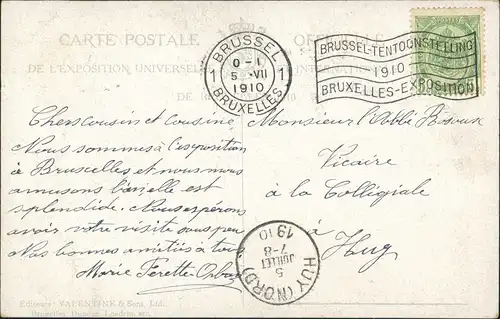 CARTE POSTALE OFFICIELLE
DE L'EXPOSITION UNIVERSELLE INTERNATIONALE
DE
BRUSSEL
1 0-1 1
5 VII
1910
BRUXELLES
BRUSSEL-TENTOONSTELLING
1910
BRUXELLES-EXPOSITION
Chers cousin et cousine
Nous sommes à l'exposition
à Bruxelles et nous nous
amusons bien elle est
splendide. Nous espérons
avoir votre visite sous peu
Nos bonnes amitiés à tous
Marie Ferette
Monsieur l'abbé
Vicaire
à la Collégiale
à
Huy
HUY (NORD)
5
JUILLET
7-8
1910
Editeurs: VALENTINE & Sons, Ltd.
Bruxelles, Dundee, Londres, etc.